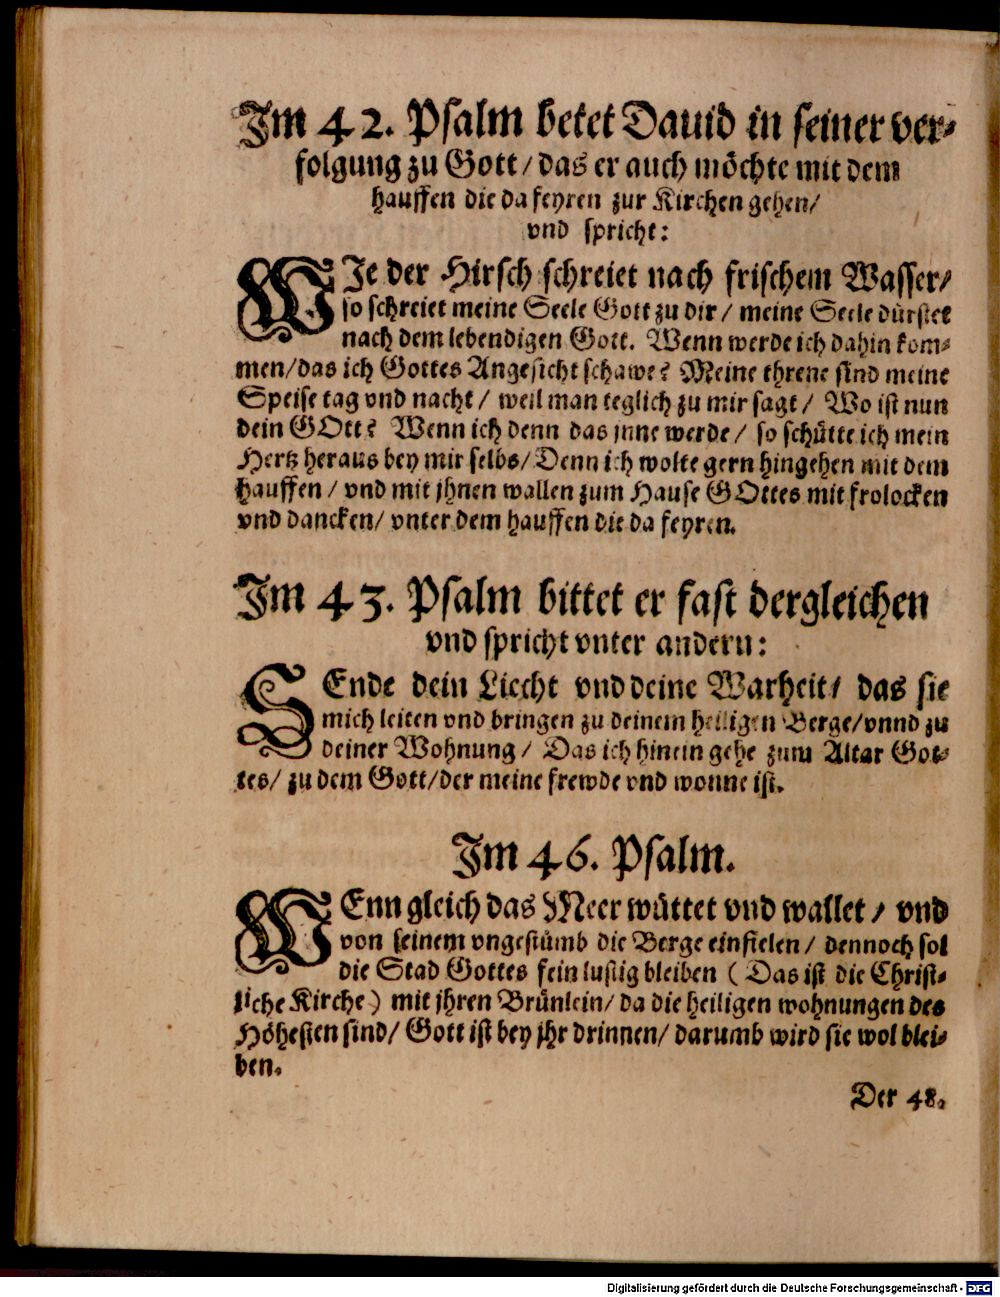 Im 42. Psalm betet Dauid in seiner ver⸗
folgung zu Gott / das er auch möchte mit dem
hauffen die da feyren zur Kirchen gehen /
vnd spricht:
WIe der Hirsch schreiet nach frischem Wasser /
so schreiet meine Seele Gott zu dir / meine Seele dürstet
nach dem lebendigen Gott. Wenn werde ich dahin kom⸗
men / das ich Gottes Angesicht schawe? Meine threne sind meine
Speise tag vnd nacht / weil man teglich zu mir sagt / Wo ist nun
dein GOtt? Wenn ich denn das jnne werde / so schütte ich mein
Hertz heraus bey mir selbs / Denn ich wolte gern hingehen mit dem
hauffen / vnd mit jhnen wallen zum Hause GOttes mit frolocken
vnd dancken / vnter dem hauffen die da feyren.
Im 43. Psalm bittet er fast dergleichen
vnd spricht vnter andern:
SEnde dein Liecht vnd deine Warheit / das sie
mich leiten vnd bringen zu deinem heiligen Berge / vnnd zu
deiner Wohnung / Das ich hinein gehe zum Altar Got⸗
tes / zu dem Gott / der meine frewde vnd wonne ist.
Im 46. Psalm.
WEnn gleich das Meer wüttet vnd wallet / vnd
von seinem vngestümb die Berge einfielen / dennoch sol
die Stad Gottes fein lustig bleiben ( Das ist die Christ⸗
liche Kirche ) mit jhren Brünlein / da die heiligen wohnungen des
Höhesten sind / Gott ist bey jhr drinnen / darumb wird sie wol blei⸗
ben.
Der 48.
Digitalisierung gefördert durch die Deutsche Forschungsgemeinschaft - DFG